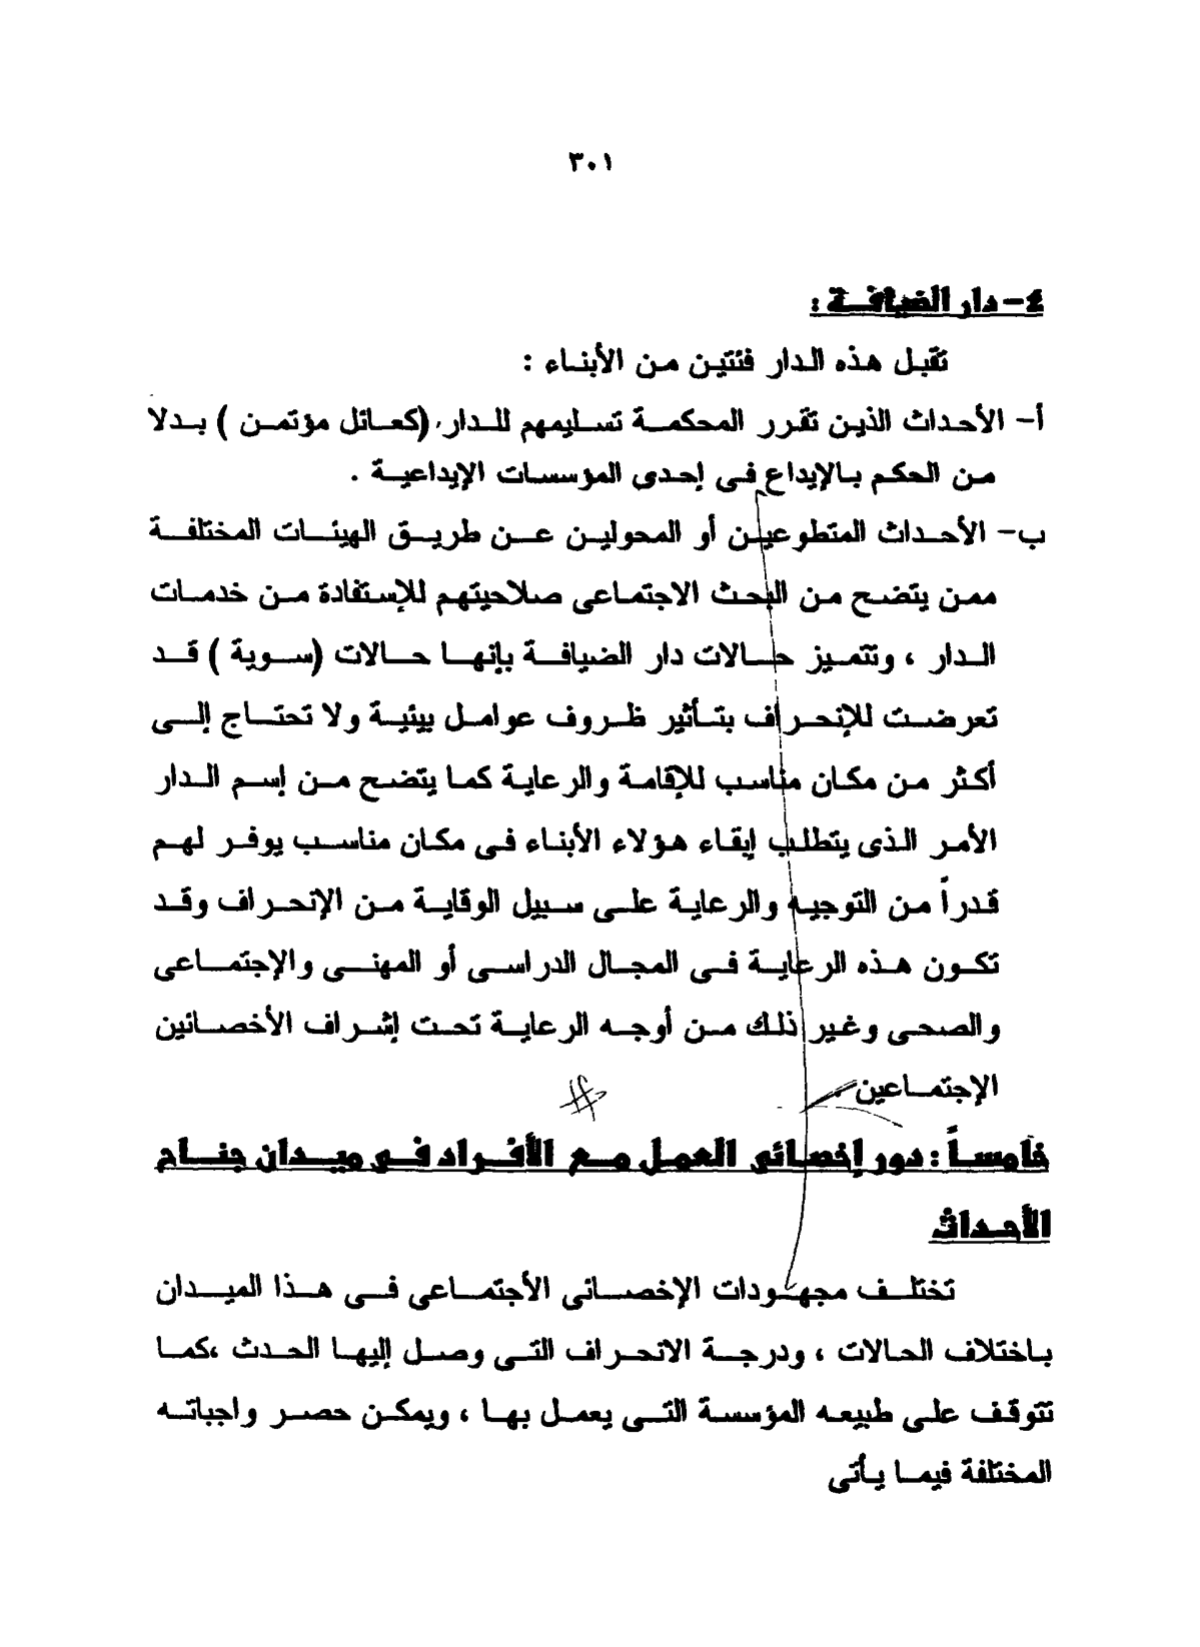 ٣٠١
٤- دار الضيافة :
تقبل هذه الدار فئتين من الأبناء :
أ- الأحداث الذين تقرر المحكمة تسليمهم للدار (كعائل مؤتمن ) بدلا
من الحكم بالإيداع فى إحدى المؤسسات الإيداعية .
ب- الأحداث المتطوعين أو المحولين عن طريق الهيئات المختلفة
ممن يتضح من البحث الاجتماعى صلاحيتهم للإستفادة من خدمات
الدار ، وتتميز حالات دار الضيافة بإنها حالات (سوية ) قد
تعرضت للإنحراف بتأثير ظروف عوامل بيئية ولا تحتاج إلى
أكثر من مكان مناسب للإقامة والرعاية كما يتضح من إسم الدار
الأمر الذى يتطلب إبقاء هؤلاء الأبناء فى مكان مناسب يوفر لهم
قدراً من التوجيه والرعاية على سبيل الوقاية من الإنحراف وقد
تكون هذه الرعاية فى المجال الدراسى أو المهنى والإجتماعى
والصحى وغير ذلك من أوجه الرعاية تحت إشراف الأخصائين
الإجتماعين
خامساً : دور إخصائى العمل مع الأفراد فى ميدان جناح
الأحداث
تختلف مجهودات الإخصائى الأجتماعى فى هذا الميدان
باختلاف الحالات ، ودرجة الانحراف التى وصل إليها الحدث ،كما
تتوقف على طبيعه المؤسسة التى يعمل بها ، ويمكن حصر واجباته
المختلفة فيما يأتى